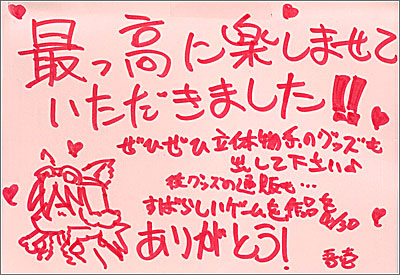 最っ高に楽しませて
いただきました!!
ぜひぜひ立体物系のグッズも
出して下さい♪
グッズの通販も…
すばらしいゲームを作品を
ありがとう!